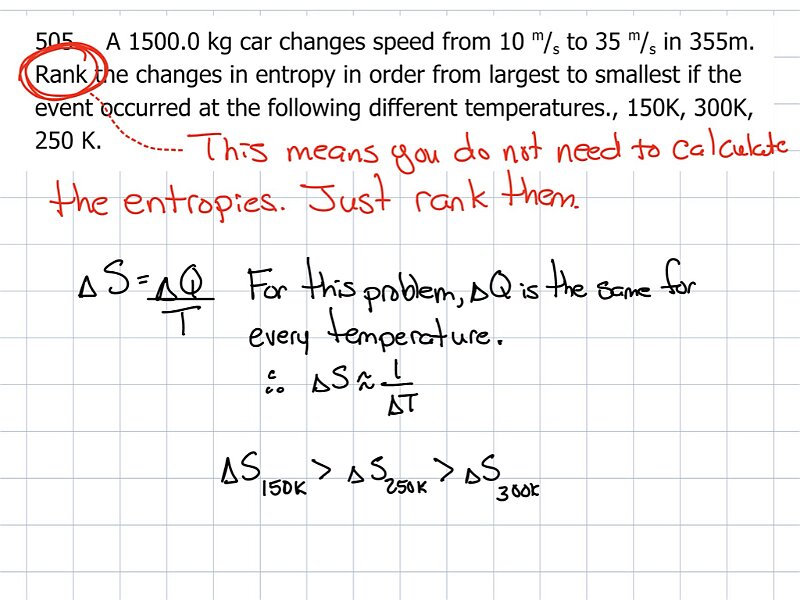 505. A 1500.0 kg car changes speed from 10 m/s to 35 m/s in 355m.
Rank the changes in entropy in order from largest to smallest if the
event occurred at the following different temperatures., 150K, 300K,
250 K.
This means you do not need to calculate
the entropies. Just rank them.
ΔS = ΔQ/T For this problem, ΔQ is the same for
every temperature.
∴ ΔS ≈ 1/ΔT
ΔS150K > ΔS250K > ΔS300K